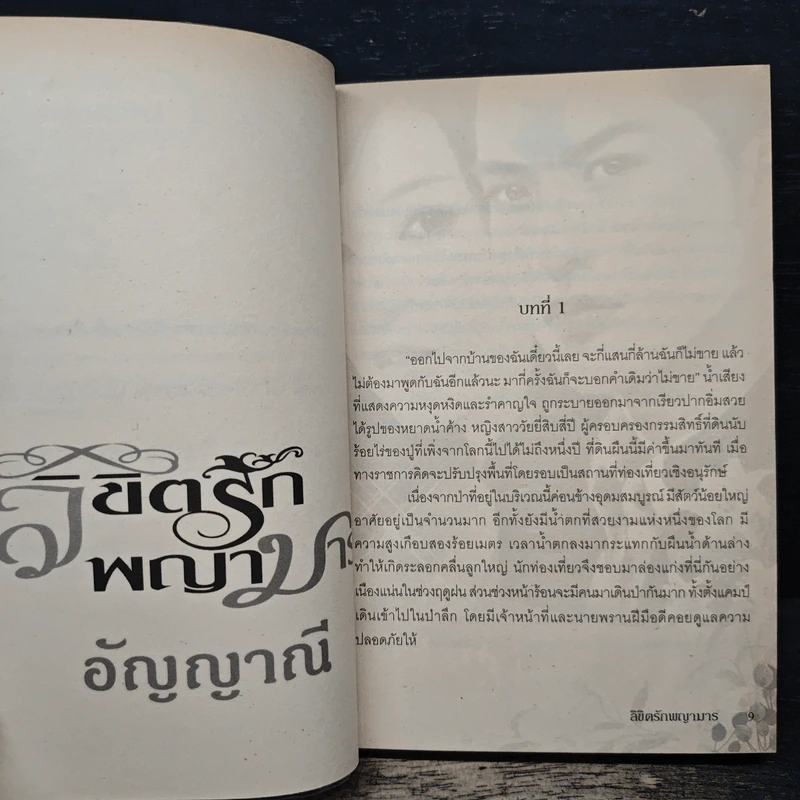 ลิขิตรัก
พญามาร
อัญญาณี
บทที่ 1
“ออกไปจากบ้านของฉันเดี๋ยวนี้เลย จะกี่แสนกี่ล้านฉันก็ไม่ขาย แล้ว
ไม่ต้องมาพูดกับฉันอีกแล้วนะ มากี่ครั้งฉันก็จะบอกคำเดิมว่าไม่ขาย” น้ำเสียง
ที่แสดงความหงุดหงิดและรำคาญใจ ถูกระบายออกมาจากเรียวปากอิ่มสวย
ได้รูปของหยาดน้ำค้าง หญิงสาววัยยี่สิบสี่ปี ผู้ครอบครองกรรมสิทธิ์ที่ดินนับ
ร้อยไร่ของปู่ที่เพิ่งจากโลกนี้ไปได้ไม่ถึงหนึ่งปี ที่ดินผืนนี้มีค่าขึ้นมาทันที เมื่อ
ทางราชการคิดจะปรับปรุงพื้นที่โดยรอบเป็นสถานที่ท่องเที่ยวเชิงอนุรักษ์
เนื่องจากป่าที่อยู่ในบริเวณนี้ค่อนข้างอุดมสมบูรณ์ มีสัตว์น้อยใหญ่
อาศัยอยู่เป็นจำนวนมาก อีกทั้งยังมีน้ำตกที่สวยงามแห่งหนึ่งของโลก มี
ความสูงเกือบสองร้อยเมตร เวลาน้ำตกลงมากระแทกกับผืนน้ำด้านล่าง
ทำให้เกิดระลอกคลื่นลูกใหญ่ นักท่องเที่ยวจึงชอบมาล่องแก่งที่นี่กันอย่าง
เนืองแน่นในช่วงฤดูฝน ส่วนช่วงหน้าร้อนจะมีคนมาเดินป่ากันมาก ทั้งตั้งแคมป์
เดินเข้าไปในป่าลึก โดยมีเจ้าหน้าที่และนายพรานฝีมือดีคอยดูแลความ
ปลอดภัยให้
ลิขิตรักพญามาร 9